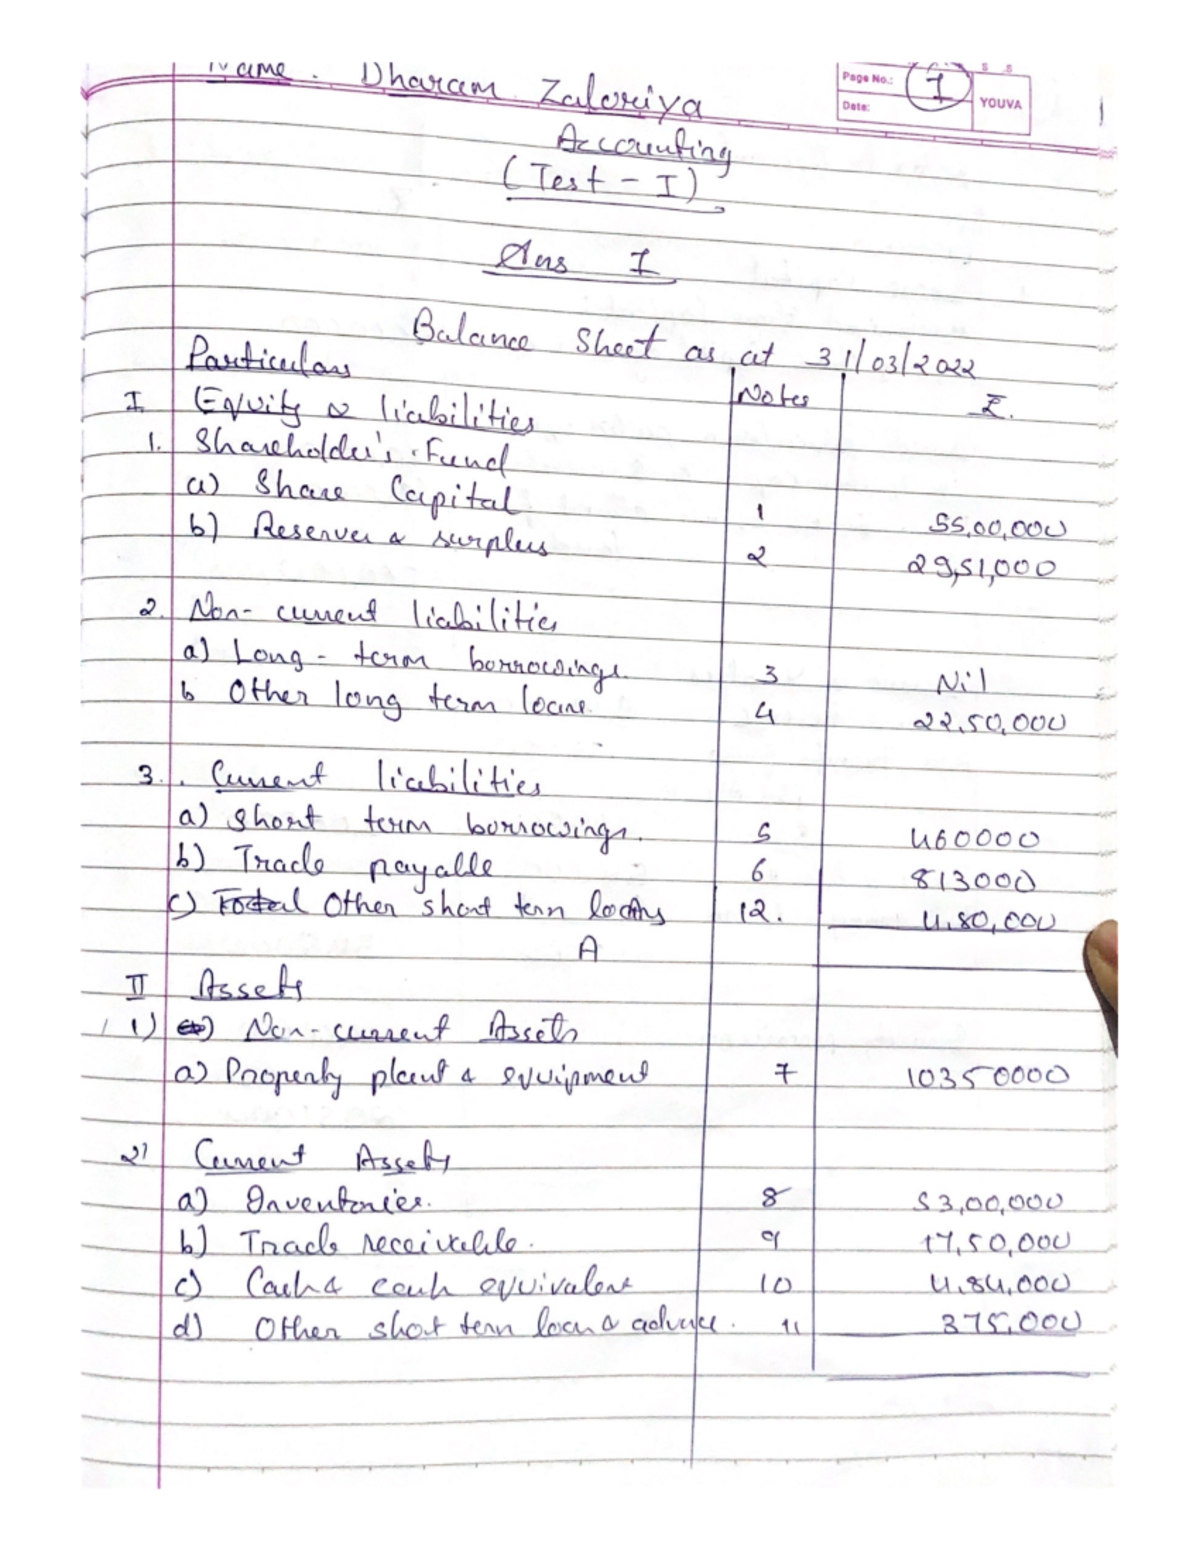 Name. Dharam Zaloriya
Page No.: 1
Date:
YOUVA
Accounting
(Test - I)
Ans I
Balance Sheet as at 31/03/2022
Particulars Notes ₹.
I Equity & liabilities
1. Shareholder's Fund
a) Share Capital 1 55,00,000
b) Reserves & surplus 2 29,51,000
2. Non-current liabilities
a) Long-term borrowings. 3 Nil
b Other long term loans 4 22,50,000
3. Current liabilities
a) Short term borrowings. 5 460000
b) Trade payable 6 813000
c) Total Other short term loans 12. 4,80,000
A
II Assets
1) Non-current Assets
a) Property plant & equipment 7 10350000
2) Current Assets
a) Inventories. 8 53,00,000
b) Trade receivable. 9 17,50,000
c) Cash & cash equivalent 10 4,84,000
d) Other short term loan & advance. 11 375,000